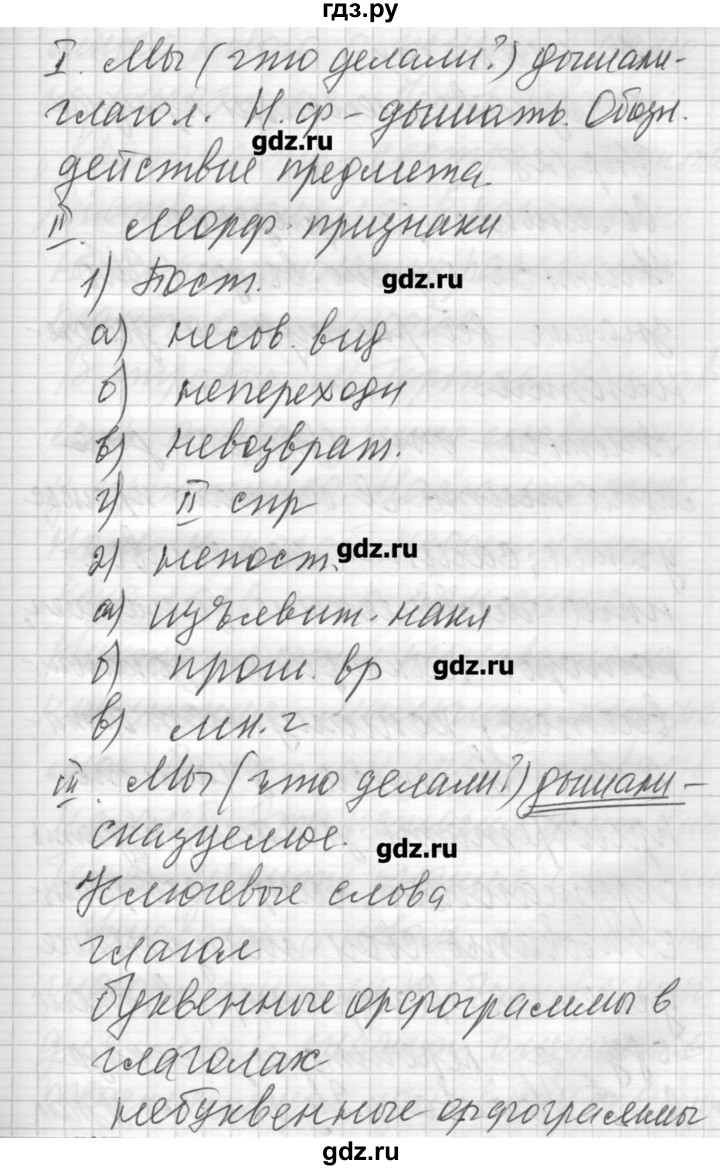 гдз.ру
I. Мы (что делали?) дышали-
глагол. Н.ф - дышать. Обозн.
gdz.ru
действие предмета
II. Морф. признаки
1) Пост. gdz.ru
а) несов. вид
б) непереходн
в) невозврат.
г) II спр
2) непост. gdz.ru
а) изъявит. накл
б) прош. вр gdz.ru
в) мн. г
III. Мы (что делали?) дышали -
сказуемое. gdz.ru
Ключевые слова
глагол
буквенные орфограммы в
глаголах
небуквенные орфограммы
gdz.ru